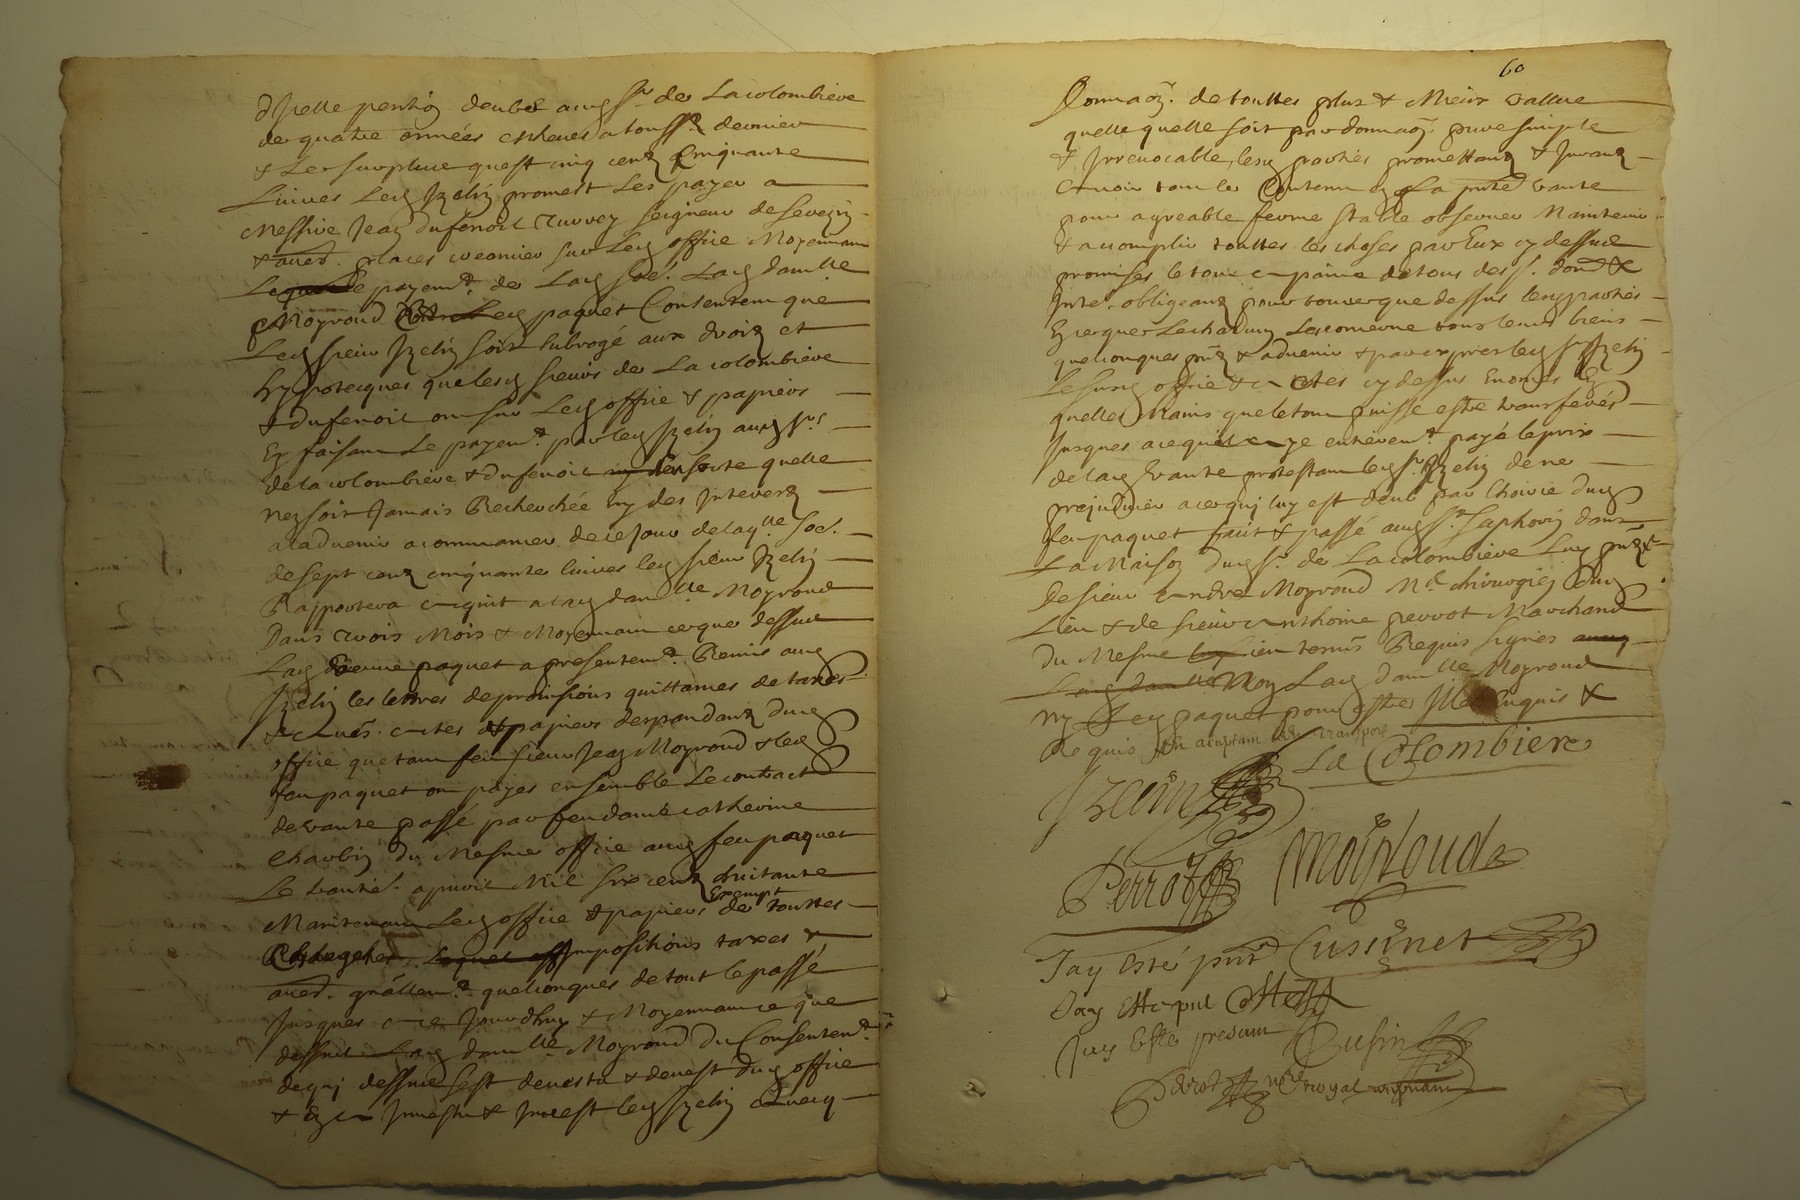 d'Icelle pention deube aud Sr. de Lacolombiere
de quatre années escheues a toussts dernier
& Le surplus quest cinq centz Cinquante
Livres Led Izelin promest Les payer a
Messire Jean dufenoil Turrey seigneur de
& aues. places creancier sur Led office Moyennant
Le payemt. de Lad soe. Lad damlle
Moyroud Led paquet Consentent que
Led sieur Izelin soit subrogé aux droitz et
hypotecques que lesd sieurs de La colombiere
& dufenoil ont sur Led office & papiers
En faisant Le payemt. par led Izelin ausd Srs
de la colombiere & dufenoil sorte quelle
nen soit Jamais Recherchée ny des Interetz
a ladvenir a commancer de ce Jour de laqlle soe.
de sept centz cinquante livres led sieur Izelin
Rapportera acquit a lad damlle Moyroud
Dans trois Mois & Moyennant ce que dessus
Lad paquet a presentemt. Remis aud
Izelin les lettres de provisions quittances de taxes
& aues. actes & papiers despandantz dud
office que tant feu sieur Jean Moyroud & led
feu paquet ont payes ensemble Le contract
de vante passé par feu dame catherine
Charbin du Mesme office aud feu paquet
Le apvril Mil six centz huitante
Maintenant Led office & papiers Exempt de touttes
Impositions taxes &
aues. grâllemt. quelconques de tout le passé
Jusques a ce Jourdhuy & Moyennant ce que
dessus Lad damlle Moyroud du Consentemt.
de qui dessus sest devestu & devest dud office
& En a Investu & Invest led Izelin avecq
60
Donnaon. de touttes plus & Mieux vallue
quelle quelle soit par donnaon. pure simple
& Irrevocable, lesd parties promettantz & Jurantz
avoir tout le Contenu en La pnte vante
pour agreable ferme stable observer Maintenir
& accomplir touttes les choses par Eux cy dessus
promises le tout a paine de tous des. donds &
Intes. obligeantz pour tout ce que dessus lesd parties
En ce que Lechacung Les concerne tous leurs biens
quelconques pntz & advenir & par expres led Sr Izelin
Le susd office & actes cy dessus Enoncés En
quelles Mains que le tout puisse estre transferés
Jusques a ce quil aye entieremt. payé le prix
de lad vante protestant led Sr. Izelin de ne
prejudicier a ce qui luy est deub par lhoirie dud
feu paquet fait & passé aud St. Saphorin dans
La Maison dud Sr. de Lacolombiere Luy pnt &
De sieur Andre Moyroud Me. chirurgien dud
Lieu & de sieur anthoine perrot Marchand
du Mesme Lieu temis Requis signes
Non Lad damlle Moyroud
ny Led paquet pour estre Enquis &
Requis acceptant
Izelin
La Colombiere
Perrot
Moyroud
Jay Esté pnt Cussinet
Jay Este pnt
Jay Este presant Cusin
Perrot nore royal